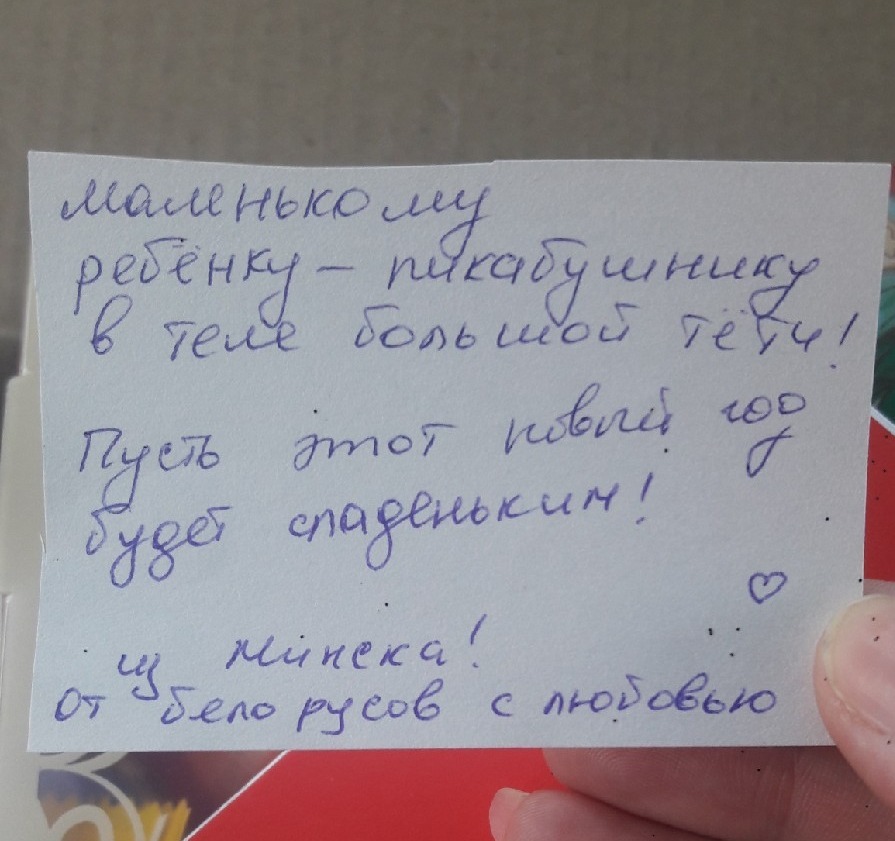 маленькому
ребёнку – пикабушнику
в теле большой тёти!
Пусть этот новый год
будет сладеньким!
♡
из Минска!
от белорусов с любовью